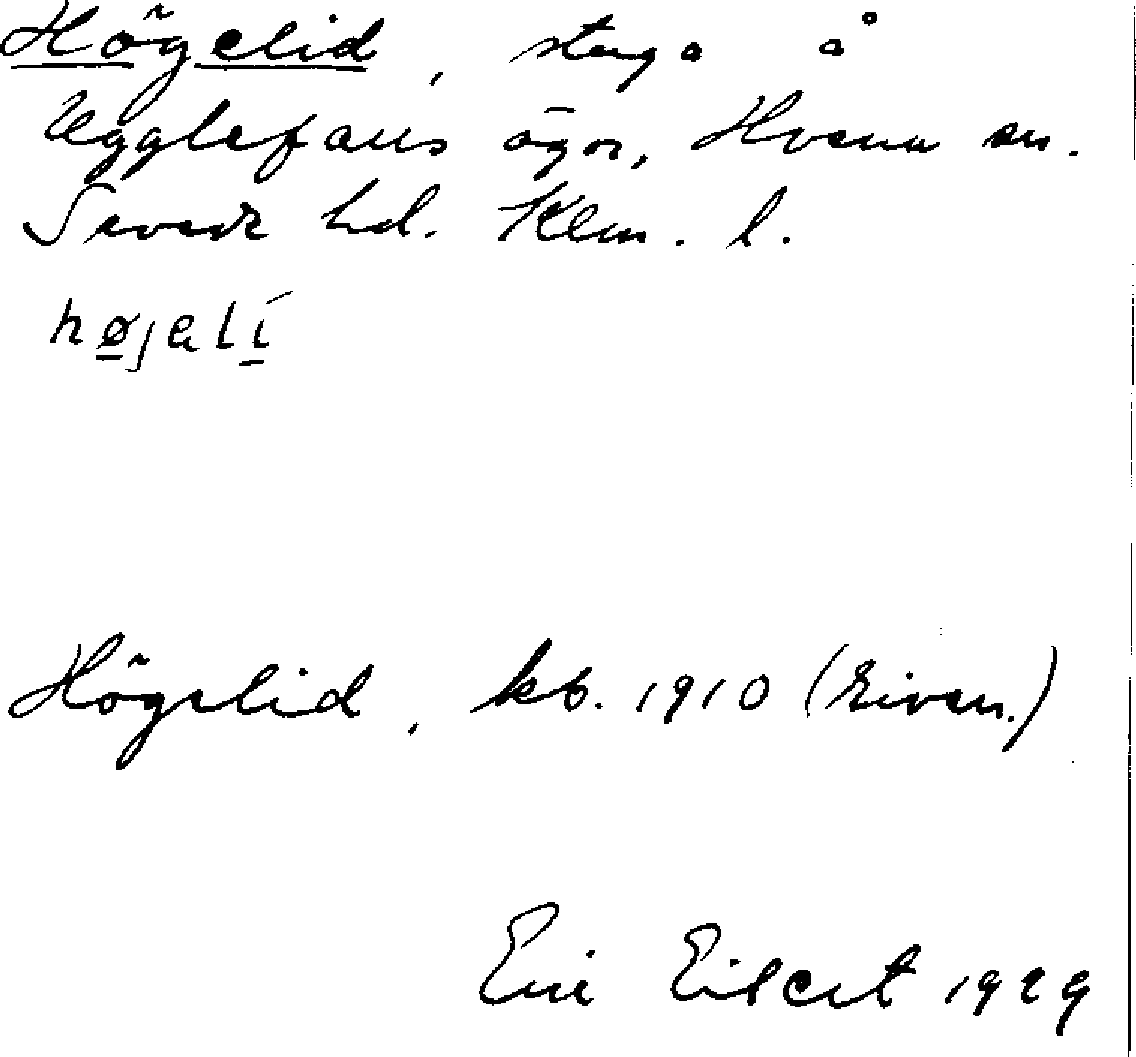 Högelid, stuga å
Ugglefalls ägor, Hvena sn.
Sevede hd. Klm. l.
højelí
Högelid, kb. 1910 (riven.)
Eric Eilert 1929